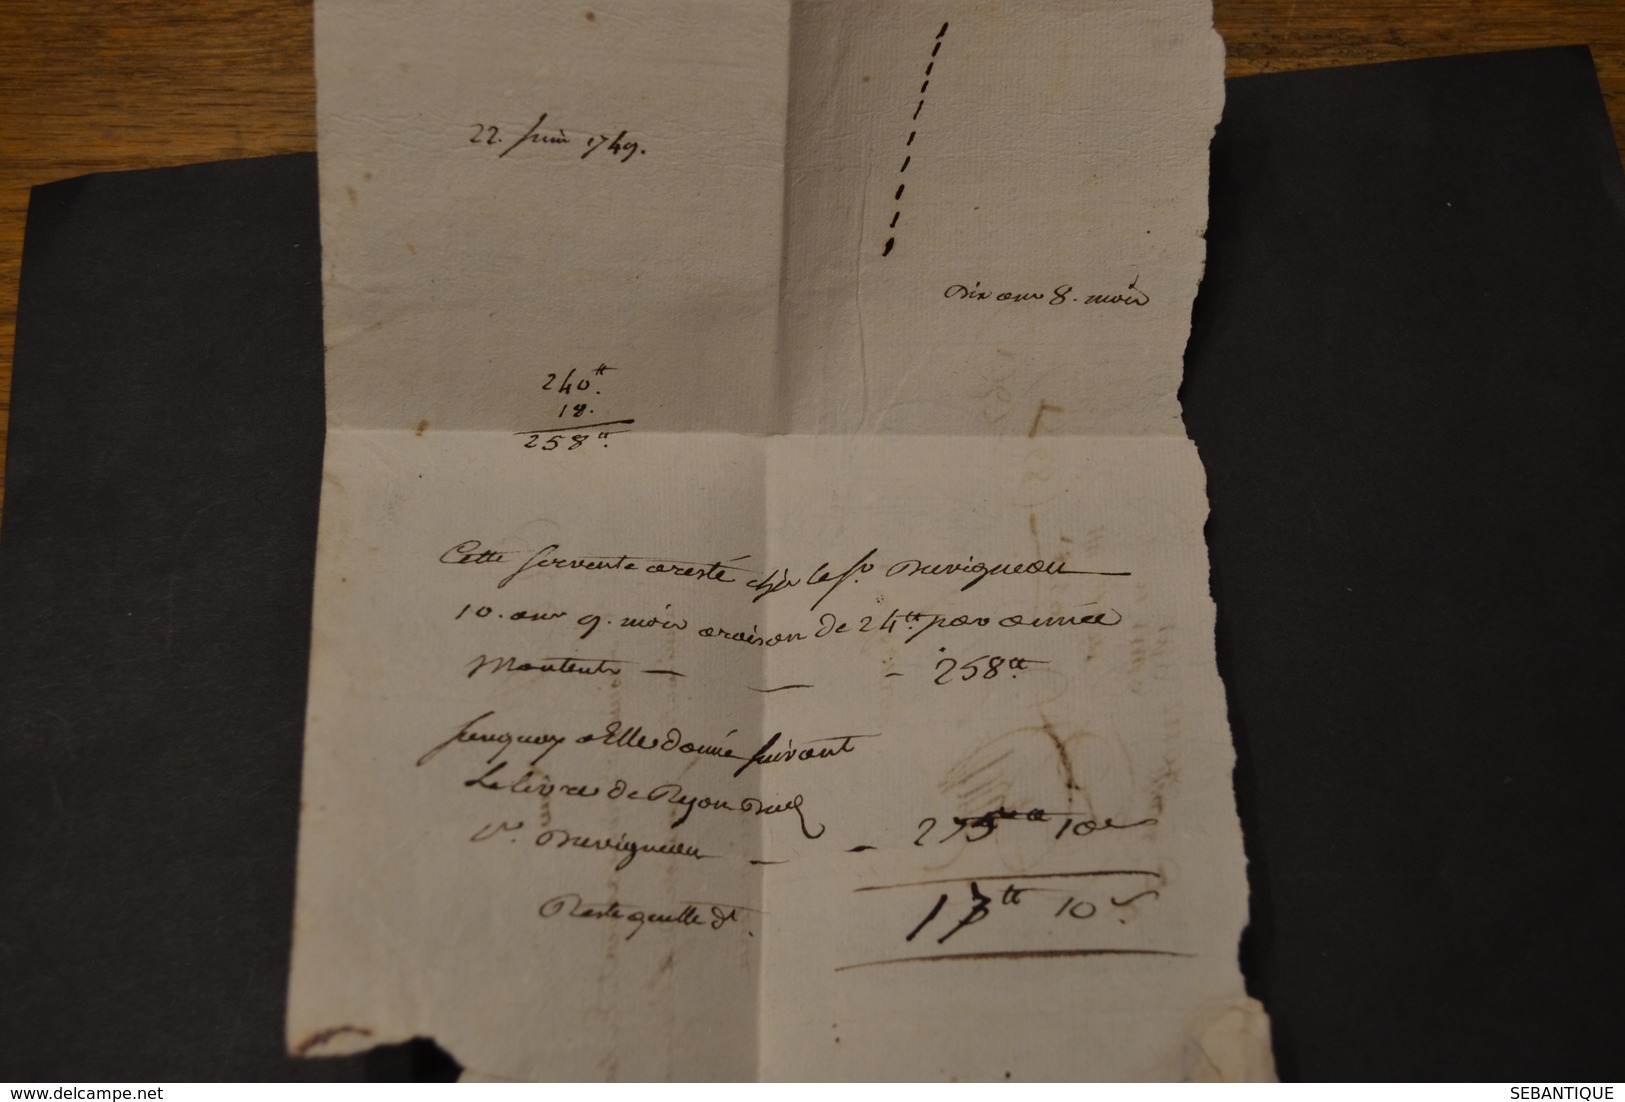 22. Juin 1749.
Dix ans 8. mois
240.tt
18.
258.tt
Cette servente a resté chés le Sr. Duvigneau
10. ans 9. mois a raison de 24.tt par année
Montent — — - 258.tt
Surquoy a Elle donné suivant
Le livre de Raison
Sr. Duvigneau — - 275tt 10s
Reste quelle dt. 17tt 10s.
delcampe.net
SEBANTIQUE